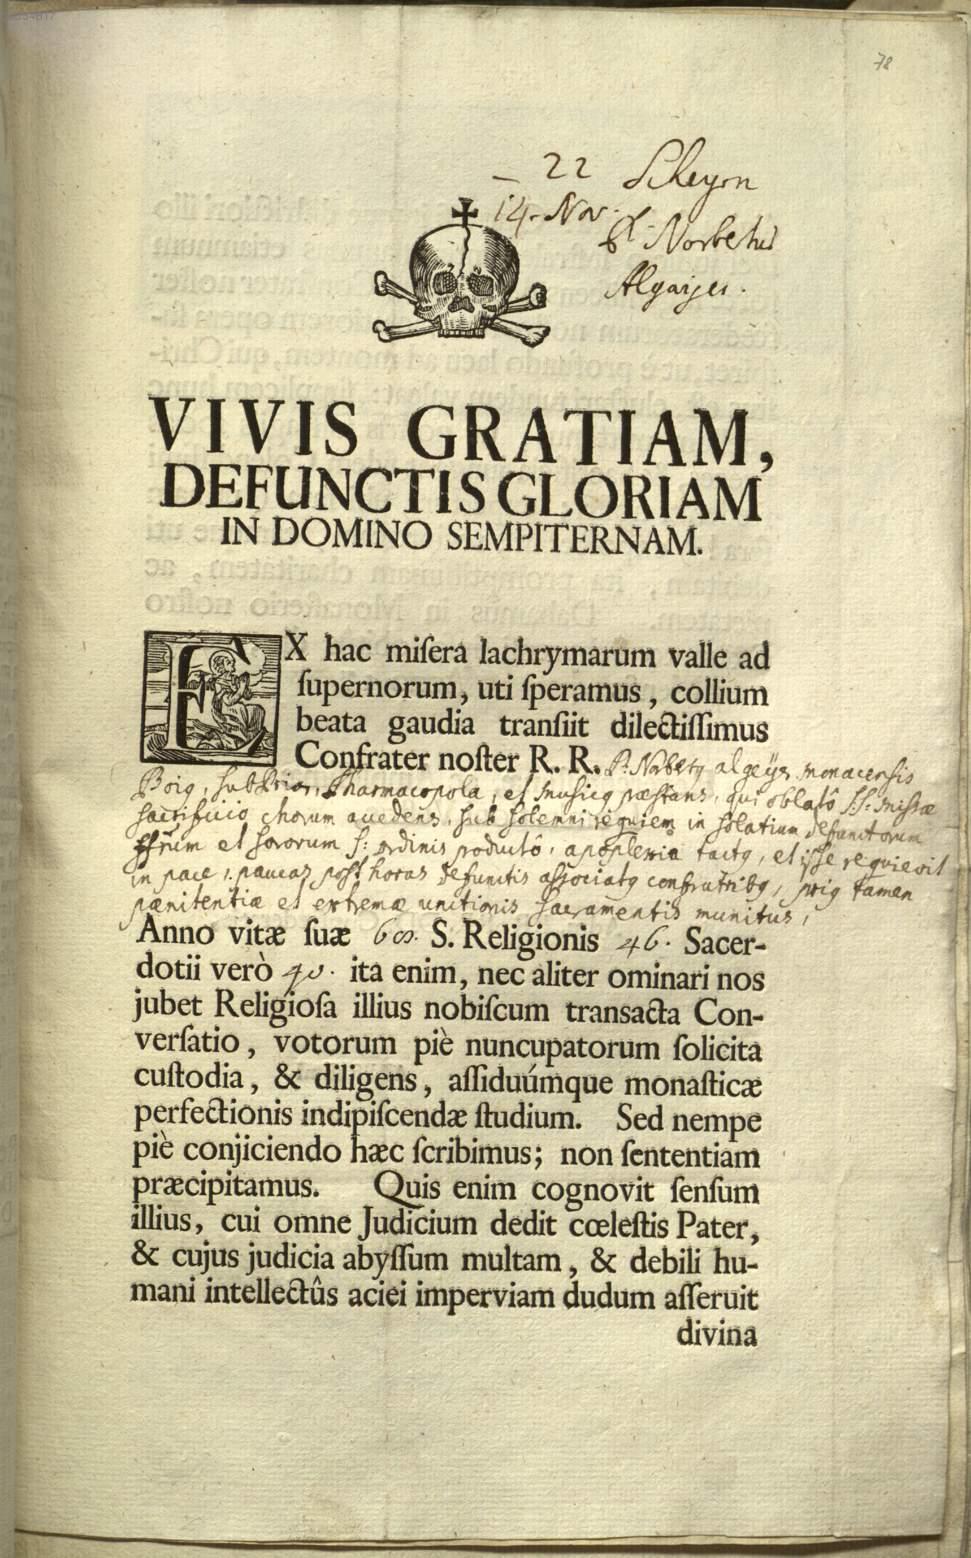 78
22 Scheyrn
14. Nov.
P. Norbertus
Algaijer.
VIVIS GRATIAM,
DEFUNCTIS GLORIAM
IN DOMINO SEMPITERNAM.
EX hac miſera lachrymarum valle ad
ſupernorum, uti ſperamus, collium
beata gaudia tranſiit dilectiſſimus
Confrater noſter R. R. P. Norbertꝰ algeÿer monacensis
Boiꝰ, SubPrior, Pharmacopola, et Musicꝰ præstans, qui oblatô SS: Missæ
sacrificio chorum accedens, sub solemni requiem in solatium defunctorum
ffrum et sororum S: ordinis productô, apoplexia tactꝰ, et ipse requievit
in pace, paucas post horas defunctis associatꝰ confratribꝰ, priꝰ tamen
pænitentiæ et extremæ unctionis sacramentis munitus,
Anno vitæ ſuæ S. Religionis 46. Sacer-
dotii verò 40. ita enim, nec aliter ominari nos
jubet Religioſa illius nobiſcum transacta Con-
verſatio, votorum piè nuncupatorum ſolicita
cuſtodia, & diligens, aſſiduúmque monaſticæ
perfectionis indipiſcendæ ſtudium. Sed nempe
piè conjiciendo hæc ſcribimus; non ſententiam
præcipitamus. Quis enim cognovit ſenſum
illius, cui omne Judicium dedit cœleſtis Pater,
& cujus judicia abyſſum multam, & debili hu-
mani intellectûs aciei imperviam dudum aſſeruit
divina